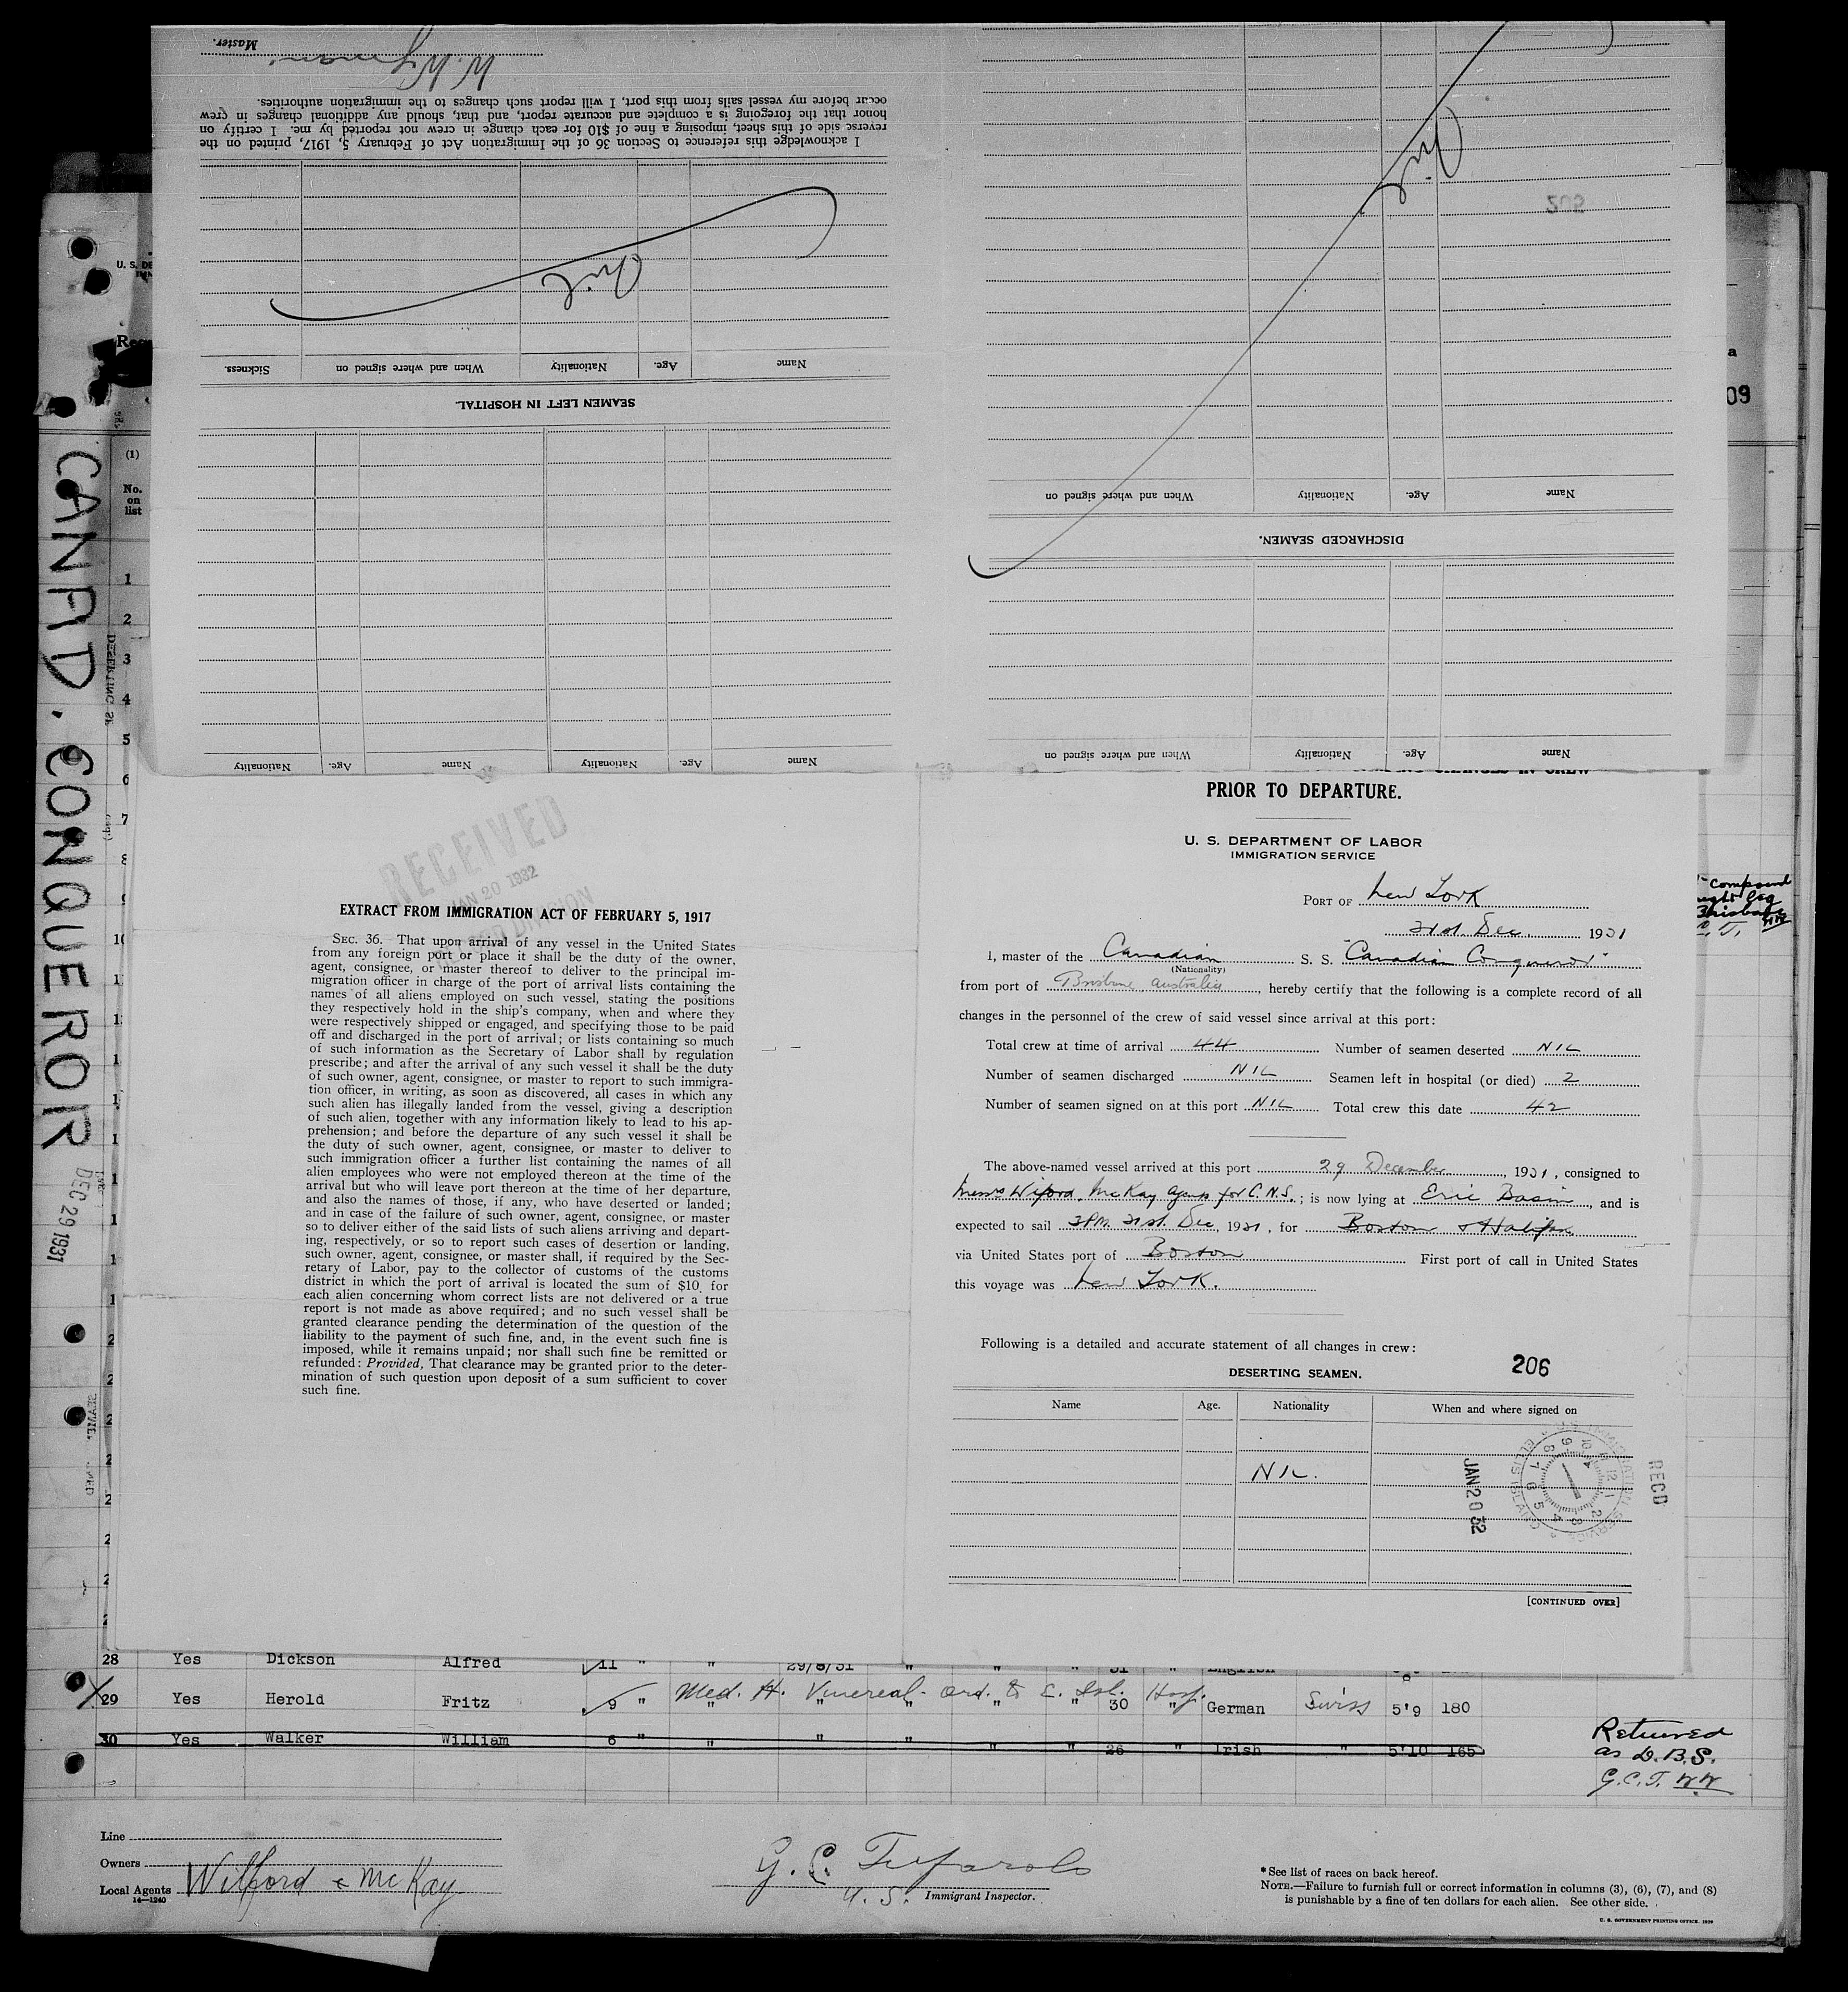 Master.
I acknowledge this reference to Section 36 of the Immigration Act of February 5, 1917, printed on the
reverse side of this sheet, imposing a fine of $10 for each change in crew not reported by me. I certify on
honor that the foregoing is a complete and accurate report, and that, should any additional changes in crew
occur before my vessel sails from this port, I will report such changes to the immigration authorities.
Nil
Sickness. When and where signed on Nationality Age. Name
SEAMEN LEFT IN HOSPITAL.
Nationality Age. Name Nationality Age. Name
Nil
205
When and where signed on Nationality Age. Name
DISCHARGED SEAMEN.
When and where signed on Nationality Age. Name
U. S. DE
(1)
No.
on
list
1
2
3
4
5
6
7
09
CANAD. CONQUEROR
DEC 29 1931
RECEIVED
JAN 20 1932
EXTRACT FROM IMMIGRATION ACT OF FEBRUARY 5, 1917
SEC. 36. That upon arrival of any vessel in the United States
from any foreign port or place it shall be the duty of the owner,
agent, consignee, or master thereof to deliver to the principal im-
migration officer in charge of the port of arrival lists containing the
names of all aliens employed on such vessel, stating the positions
they respectively hold in the ship's company, when and where they
were respectively shipped or engaged, and specifying those to be paid
off and discharged in the port of arrival; or lists containing so much
of such information as the Secretary of Labor shall by regulation
prescribe; and after the arrival of any such vessel it shall be the duty
of such owner, agent, consignee, or master to report to such immigra-
tion officer, in writing, as soon as discovered, all cases in which any
such alien has illegally landed from the vessel, giving a description
of such alien, together with any information likely to lead to his ap-
prehension; and before the departure of any such vessel it shall be
the duty of such owner, agent, consignee, or master to deliver to
such immigration officer a further list containing the names of all
alien employees who were not employed thereon at the time of the
arrival but who will leave port thereon at the time of her departure,
and also the names of those, if any, who have deserted or landed;
and in case of the failure of such owner, agent, consignee, or master
so to deliver either of the said lists of such aliens arriving and depart-
ing, respectively, or so to report such cases of desertion or landing,
such owner, agent, consignee, or master shall, if required by the Sec-
retary of Labor, pay to the collector of customs of the customs
district in which the port of arrival is located the sum of $10 for
each alien concerning whom correct lists are not delivered or a true
report is not made as above required; and no such vessel shall be
granted clearance pending the determination of the question of the
liability to the payment of such fine, and, in the event such fine is
imposed, while it remains unpaid; nor shall such fine be remitted or
refunded: Provided, That clearance may be granted prior to the deter-
mination of such question upon deposit of a sum sufficient to cover
such fine.
PRIOR TO DEPARTURE.
U. S. DEPARTMENT OF LABOR
IMMIGRATION SERVICE
PORT OF New York
31st Dec. 1931
I, master of the Canadian S. S. "Canadian Conqueror"
(Nationality)
from port of Brisbane, Australia, hereby certify that the following is a complete record of all
changes in the personnel of the crew of said vessel since arrival at this port:
Total crew at time of arrival 44 Number of seamen deserted NIL
Number of seamen discharged NIL Seamen left in hospital (or died) 2
Number of seamen signed on at this port NIL Total crew this date 42
The above-named vessel arrived at this port 29 December, 1931, consigned to
Messrs Wilford, McKay Agents for C.N.S.; is now lying at Erie Basin, and is
expected to sail 3PM 31st. Dec, 1931, for Boston & Halifax
via United States port of Boston First port of call in United States
this voyage was New York.
Following is a detailed and accurate statement of all changes in crew:
206
DESERTING SEAMEN.
Name Age. Nationality When and where signed on
NIL.
JAN 20 32
RECD
[CONTINUED OVER]
compound
Brisbane
28 Yes Dickson Alfred 11 " " 29/8/31 " " " 31 " English
Med. H. Venereal. Ord. to E. Isl. Hosp.
29 Yes Herold Fritz 9 " " " " " 30 " German Swiss 5'9 180
30 Yes Walker William 6 " " " " " 26 " Irish " 5'10 165
Returned
as D.B.S.
G.C.T. WW
Line
Owners
Local Agents Wilford & McKay
14—1240
U.S. Immigrant Inspector.
*See list of races on back hereof.
NOTE.—Failure to furnish full or correct information in columns (3), (6), (7), and (8)
is punishable by a fine of ten dollars for each alien. See other side.
U. S. GOVERNMENT PRINTING OFFICE. 1929